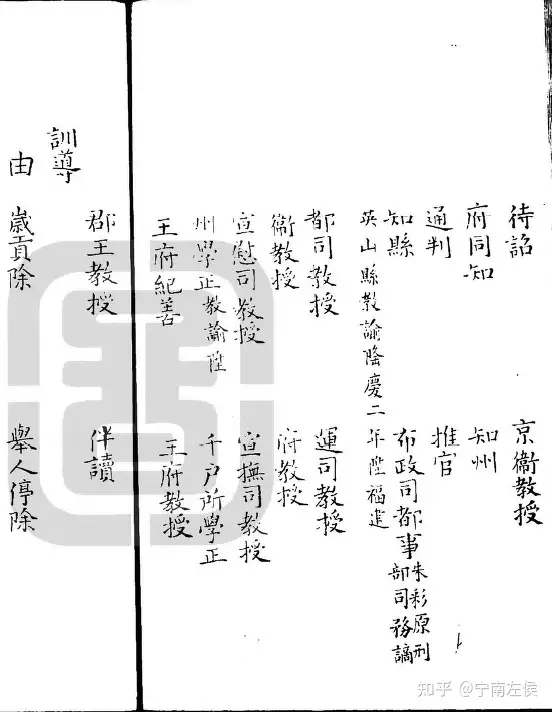 待詔 京衞教授
府同知 知州
通判 推官
知縣 布政司都事朱彩原刑部司務謫
英山縣教諭隆慶二年陞福建
都司教授 運司教授
衞教授 府教授
宣慰司教授 宣撫司教授
州學正教諭陞 千戶所學正
王府紀善 王府教授
郡王教授 伴讀
訓導
由 歲貢除 舉人停除
知乎 @宁南左侯